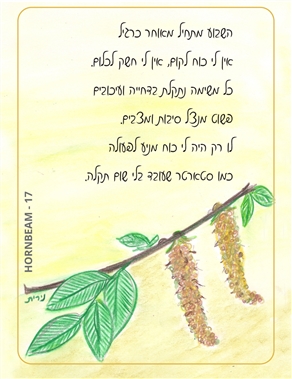 השבוע מתחיל מאוחר כרגיל
אין לי כוח לקום, אין לי חשק לכלום.
כל משימה נתקלת בדחייה ועיכובים
פשוט מנצל סיבות ומצבים.
לו רק היה לי כוח מניע לפעולה
כמו סטארטר שעובד בלי שום תקלה.
HORNBEAM - 17
נירית